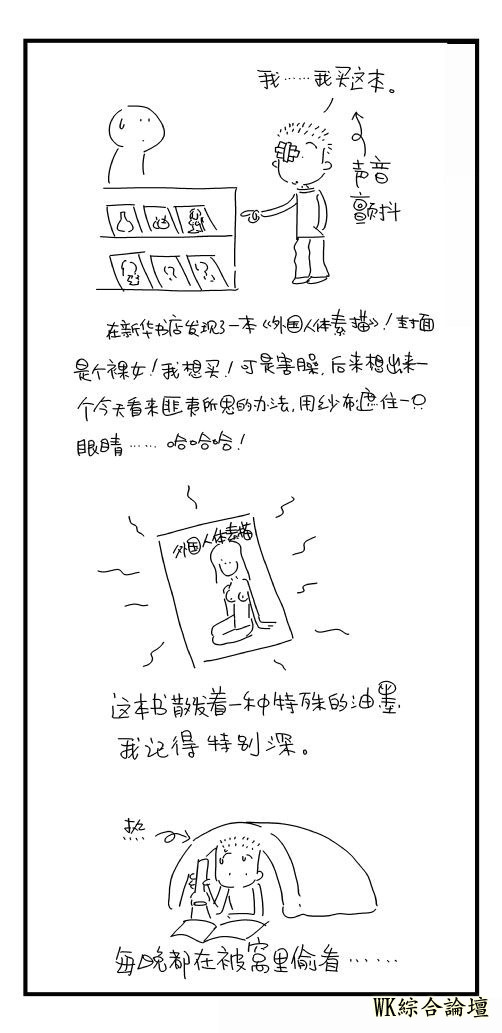 我……我买这本。
声音
颤抖
在新华书店发现了一本《外国人体素描》！封面
是个裸女！我想买！可是害臊，后来想出来一
个今天看来匪夷所思的办法，用纱布遮住一只
眼睛……哈哈哈！
外国人体素描
这本书散发着一种特殊的油墨
我记得特别深。
热
每晚都在被窝里偷看……
WK綜合論壇